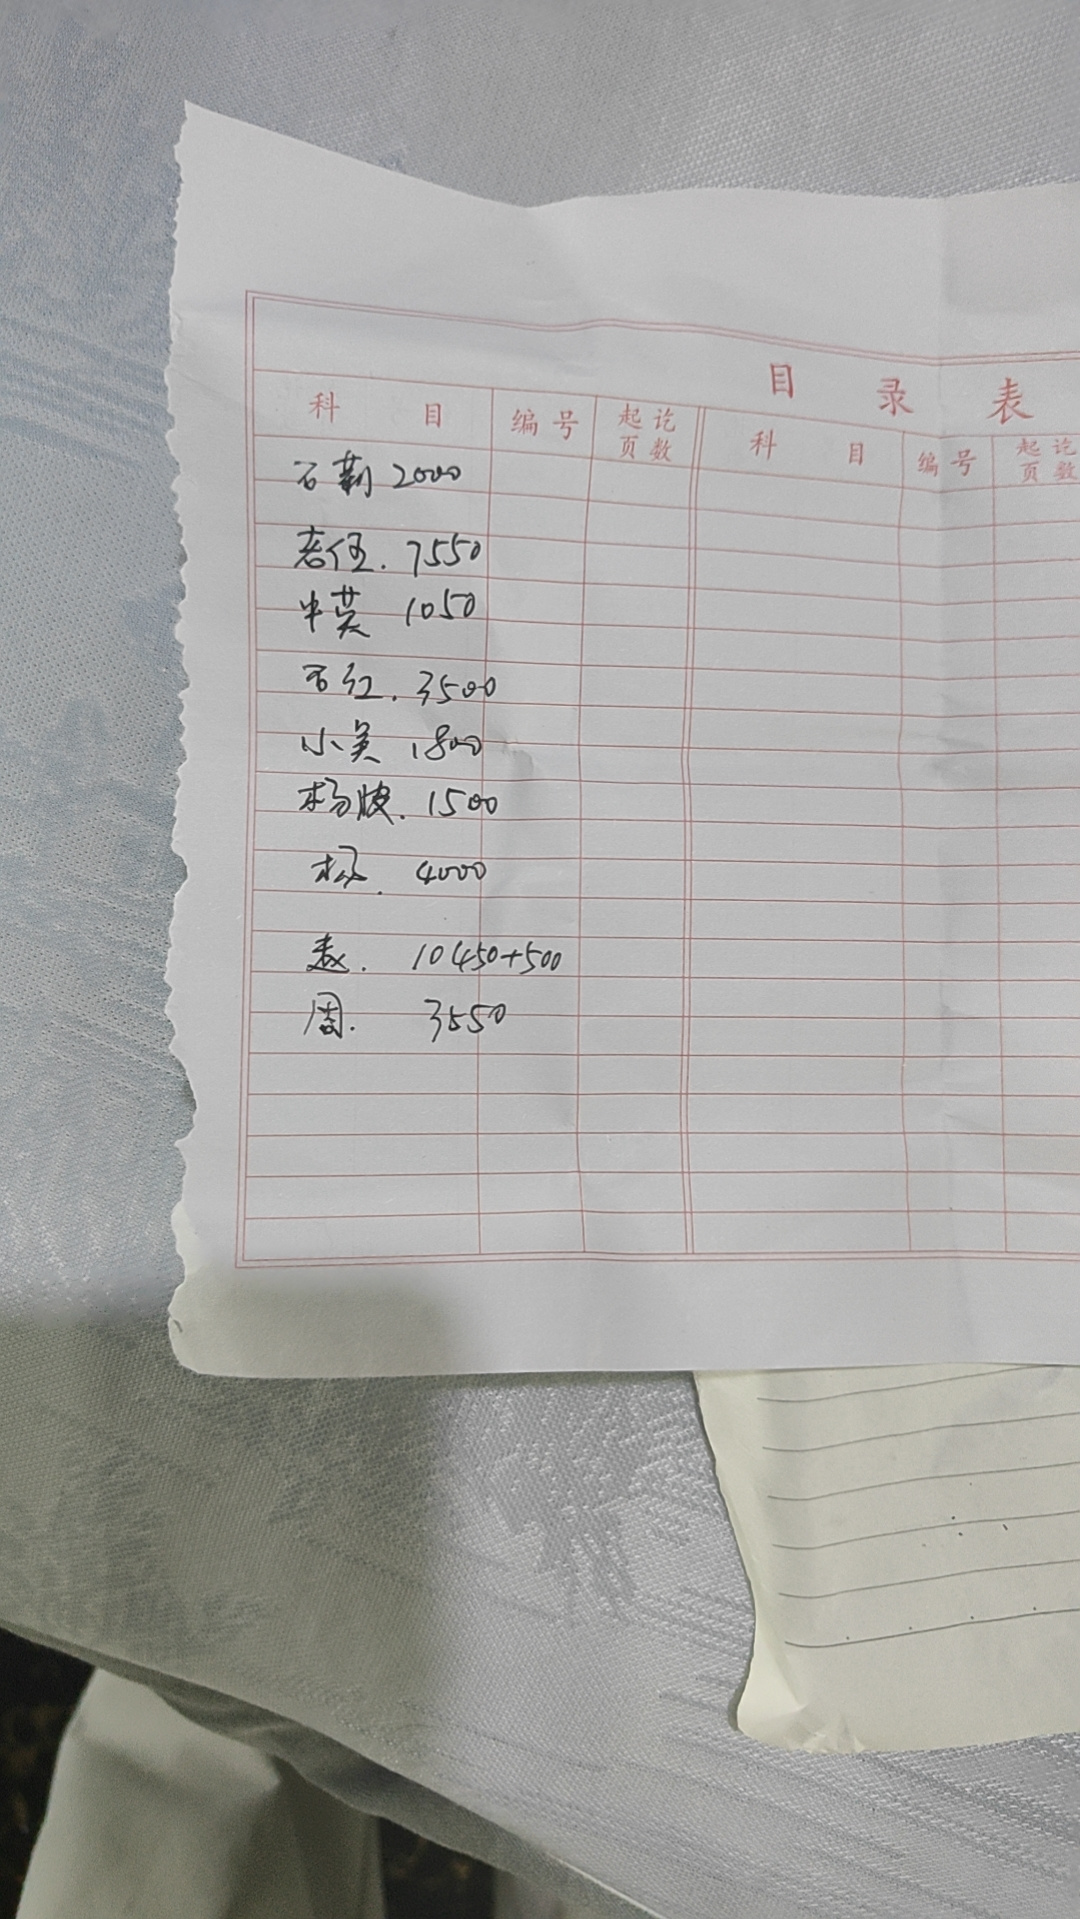 目 录 表
科 目 编号 起讫页数 科 目 编号 起讫页数
石勒 2000
老伍. 7550
中英 1050
石红. 3500
小吴 1800
杨波. 1500
杨. 4000
10450+500
周. 3550